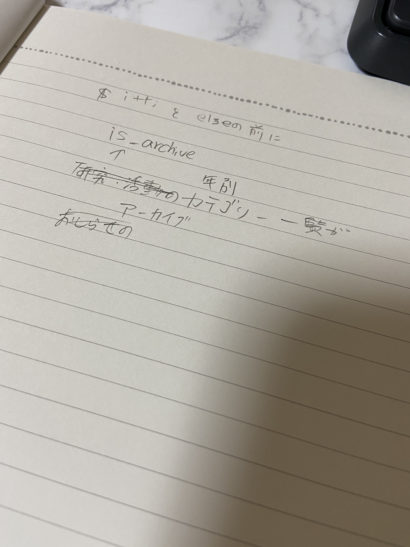 $ i++; と elseの前に
is_archive
↑
研究・活動の 年別
カテゴリー 一覧が
アーカイブ
おしらせの